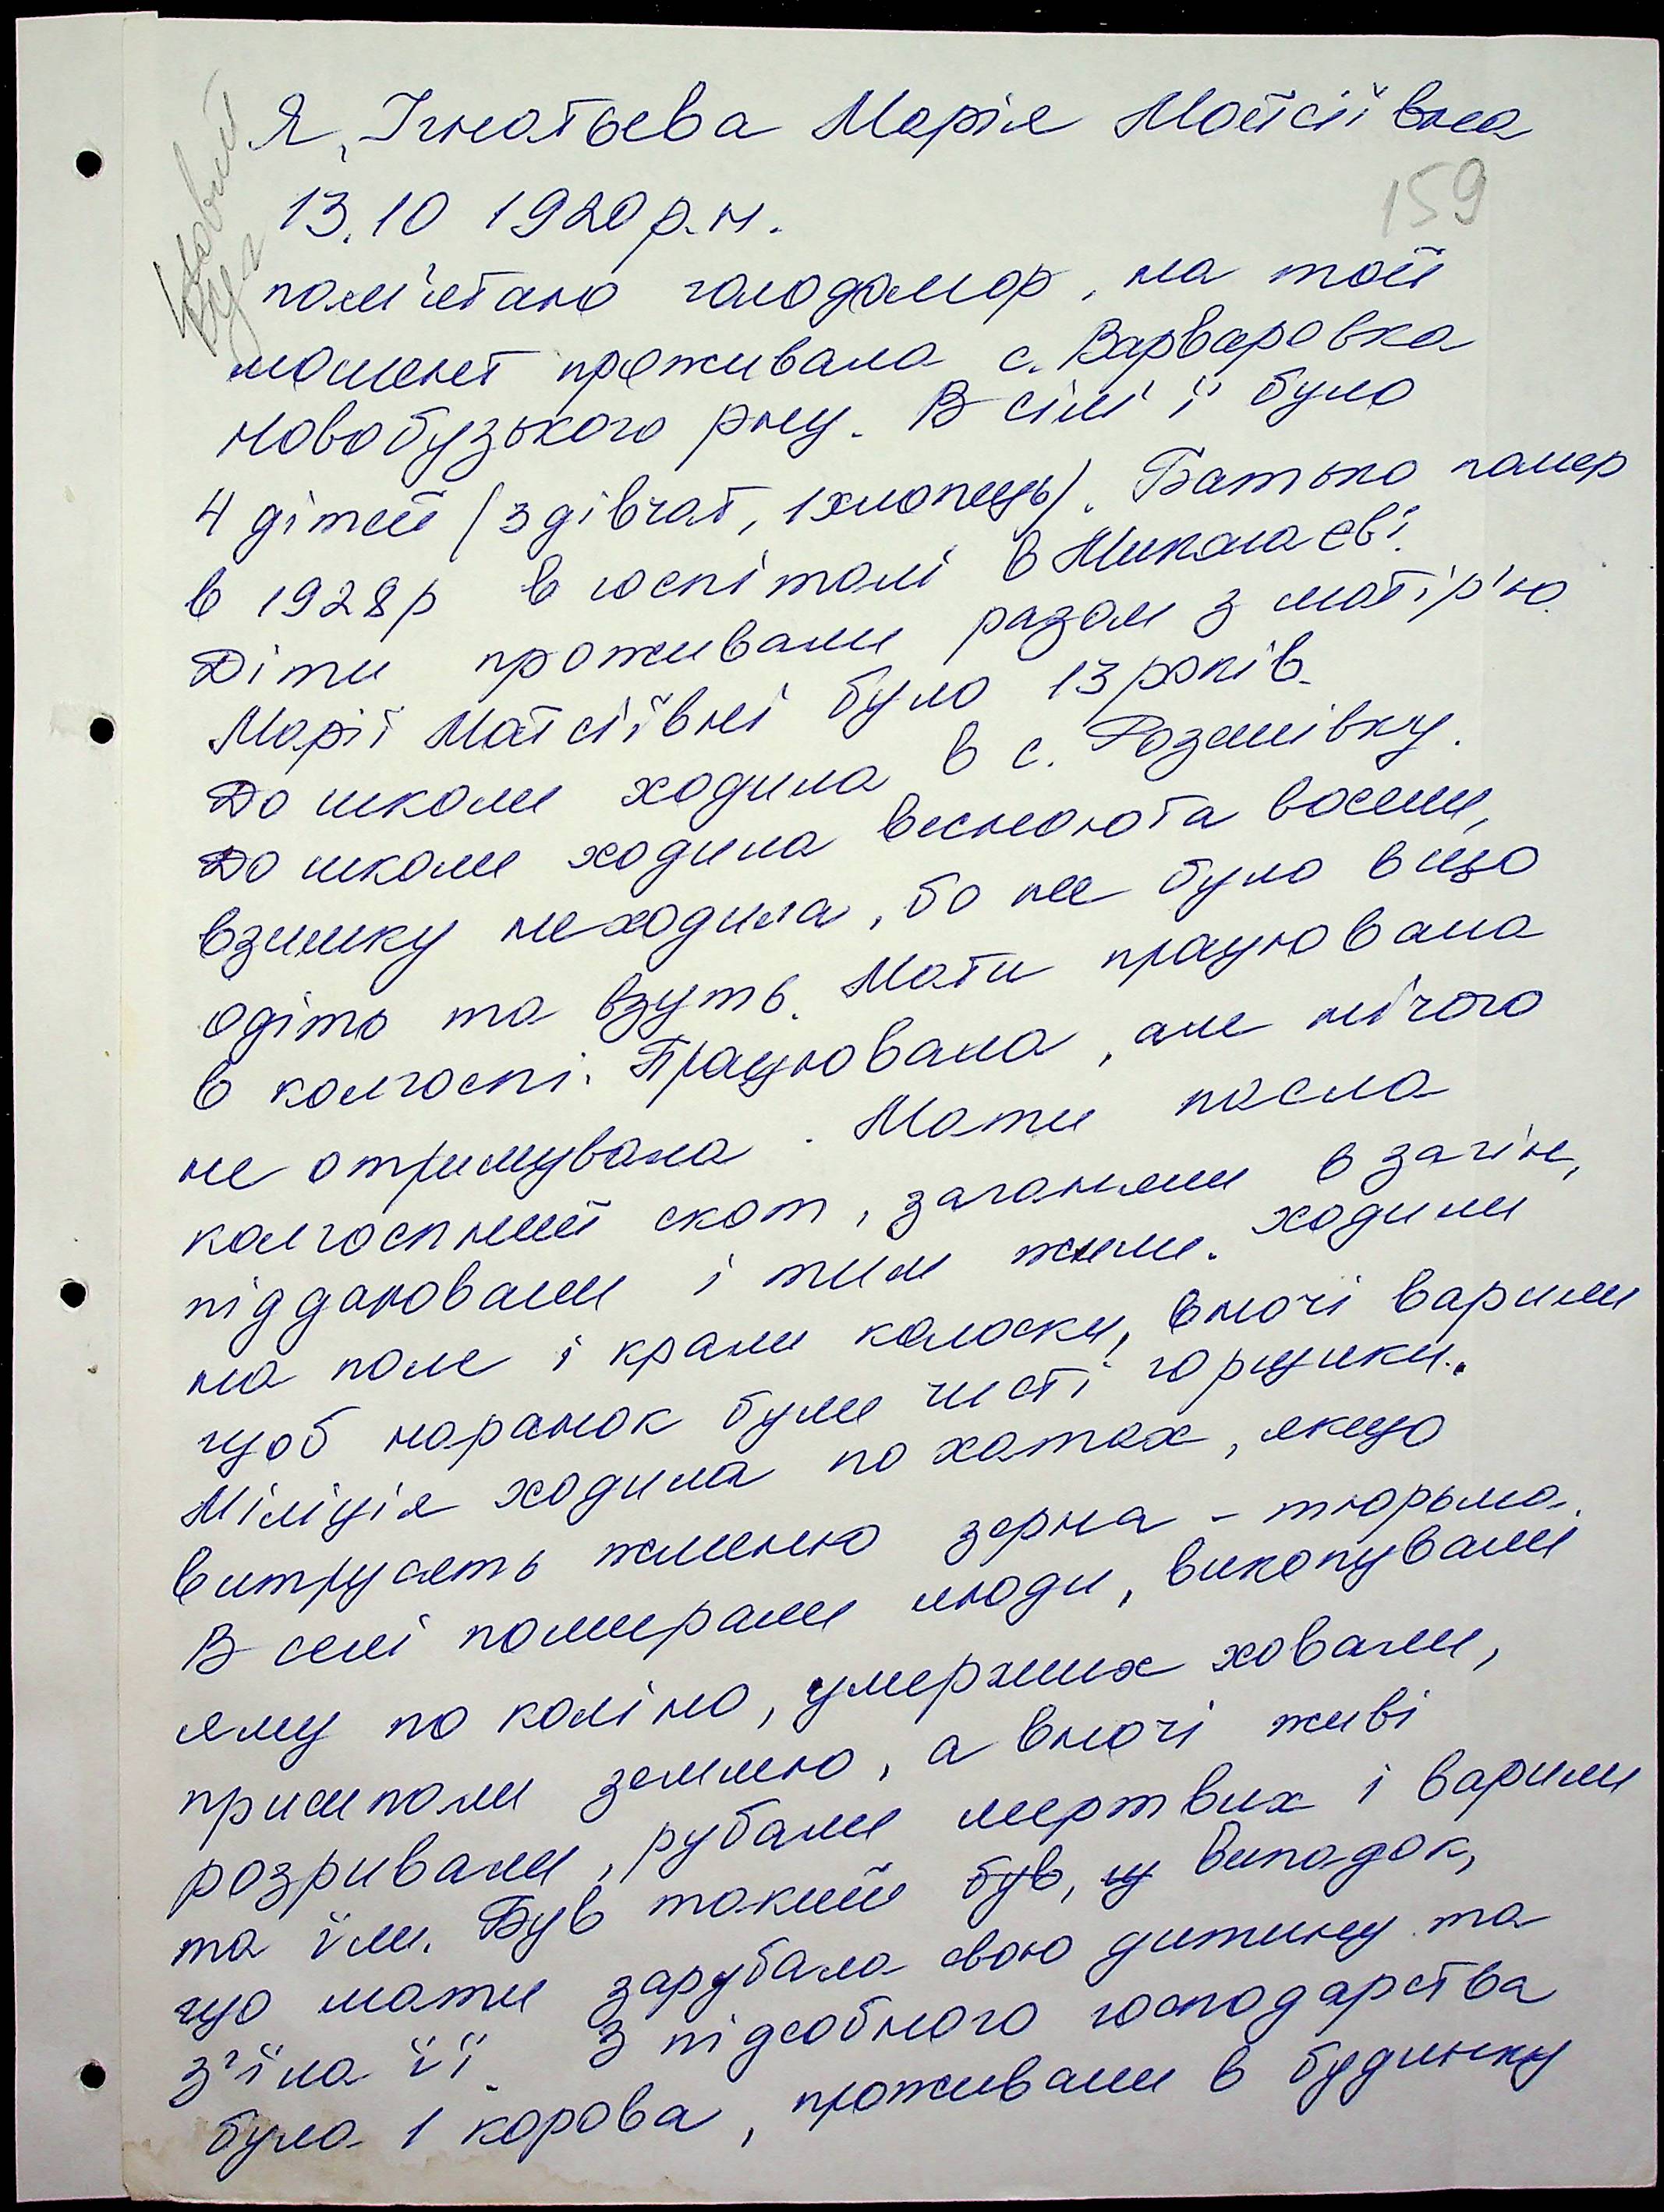 Я, Ігнатьєва Марія Мойсіївна
159
13.10 1920 р.н.
Новий
Буг
пам'ятаю голодомор, на той
момент проживала с. Варваровка
Новобузького рну. В сім'ї було
4 дітей (3 дівчат, 1 хлопець). Батько помер
в 1928р в госпіталі в Миколаєві.
Діти проживали разом з матір'ю.
Марії Мойсіївні було 13 років.
До школи ходила в с. Розанівку.
До школи ходила весною та восени,
взимку не ходила, бо не було в що
одіто та взуть. Мати працювала
в колгоспі. Працювала, але нічого
не отримувала. Мати пасла
колгоспний скот, заганяли в загін,
піддаювали і тим жили. Ходили
на поле і крали колоски, вночі варили
щоб наранок були чисті горщики.
Міліція ходила по хатах, якщо
витрусять жменю зерна - тюрьма.
В селі помирали люди, викопували
яму по коліно, умерших ховали,
присипали землею, а вночі живі
розривали, рубали мертвих і варили
та їли. Був такий був, щ випадок,
що мати зарубала свою дитину та
з'їла її. З підсобного господарства
була 1 корова, проживали в будинку